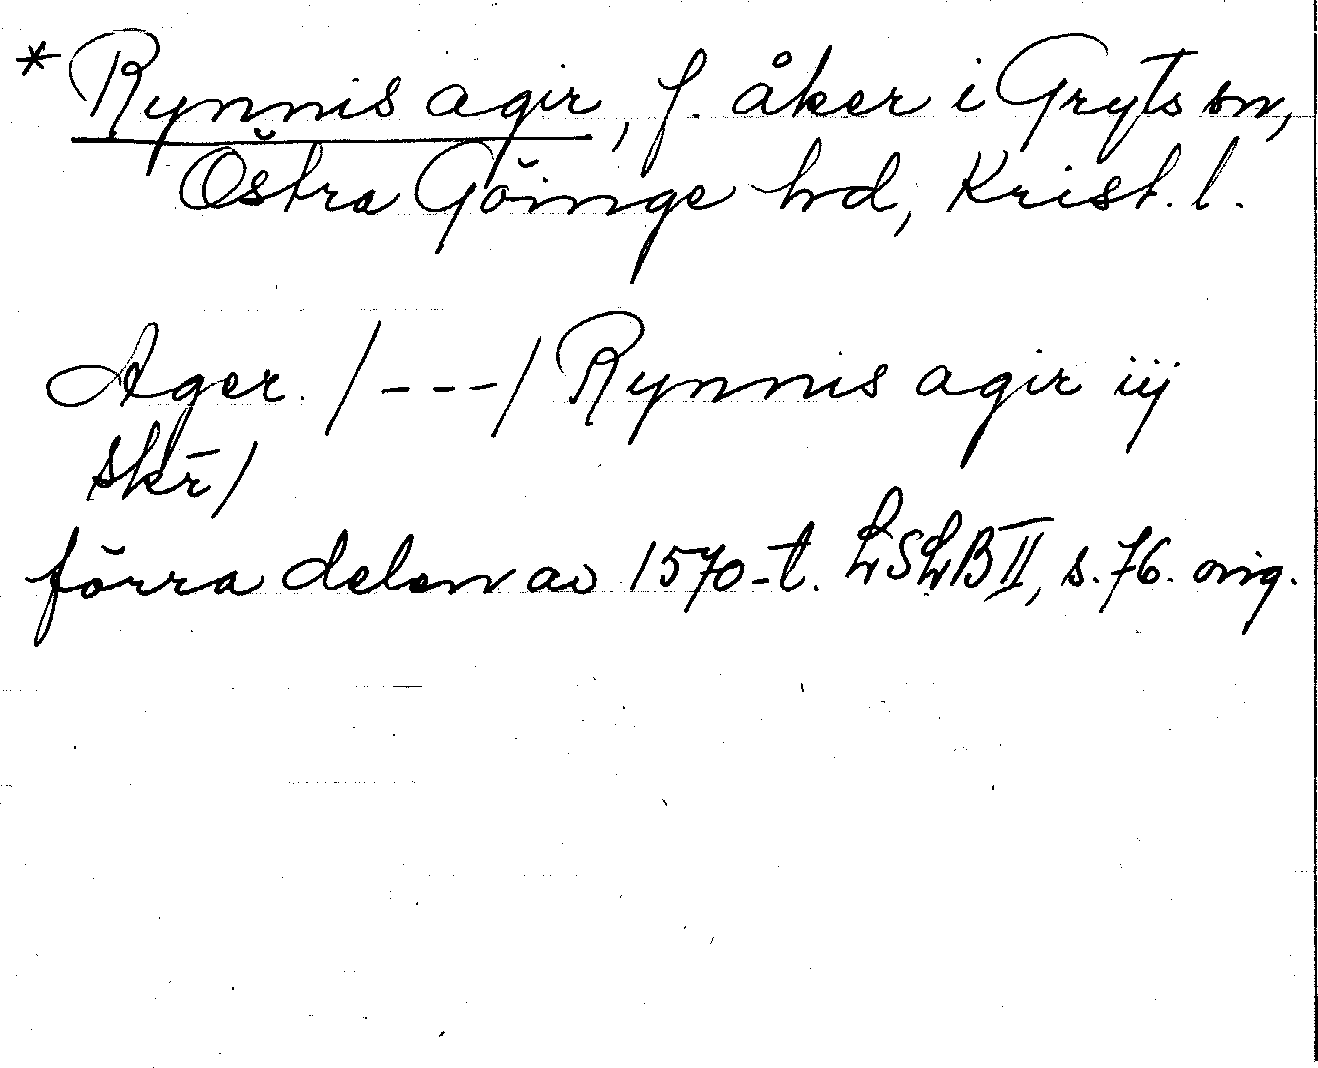 * Rynnis agir, f. åker i Gryts sn,
Östra Göinge hd, Krist. l.
Ager. /---/ Rynnis agir iij
skr̄/
förra delen av 1570-t. LSLB II, s. 76. orig.